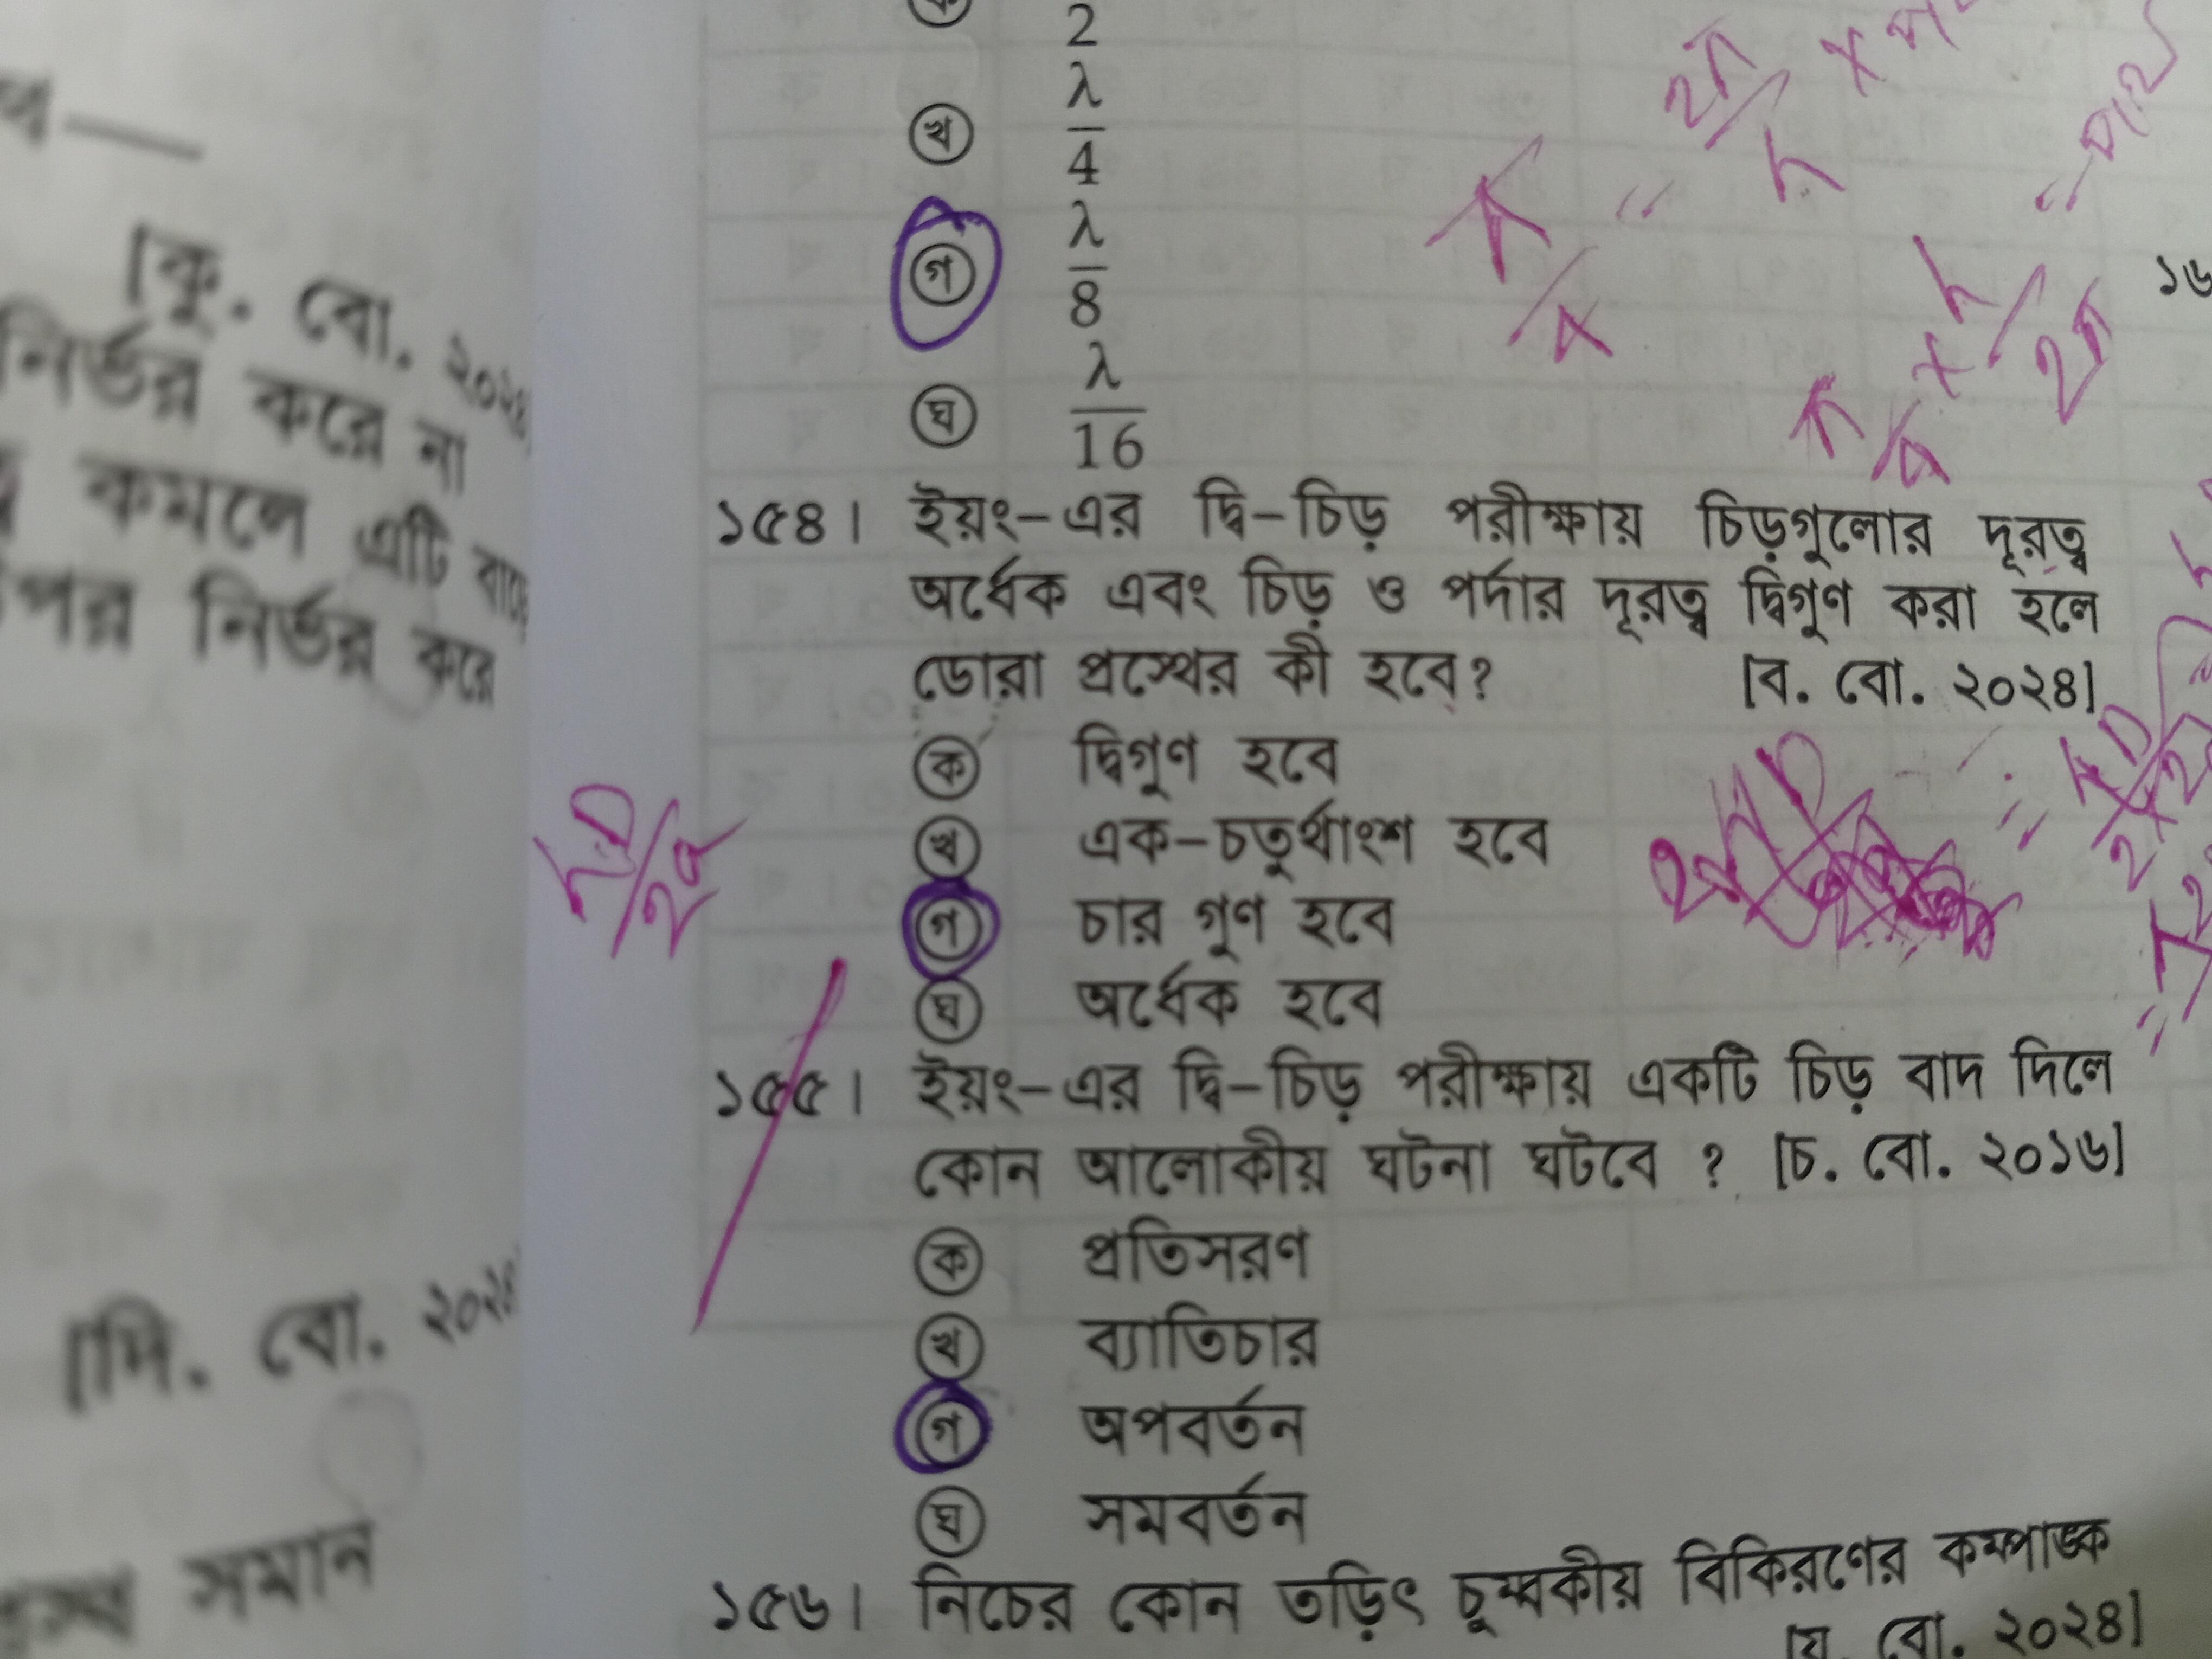 [কু. বো. ২০২
নির্ভর করে না
কমলে এটি
নির্ভর করে
[দি. বো. ২০২
সমান
2
খ λ/4
গ λ/8
ঘ λ/16
১৫৪। ইয়ং-এর দ্বি-চিড় পরীক্ষায় চিড়গুলোর দূরত্ব
অর্ধেক এবং চিড় ও পর্দার দূরত্ব দ্বিগুণ করা হলে
ডোরা প্রস্থের কী হবে? [ব. বো. ২০২৪]
ক দ্বিগুণ হবে
খ এক-চতুর্থাংশ হবে
গ চার গুণ হবে
ঘ অর্ধেক হবে
১৫৫। ইয়ং-এর দ্বি-চিড় পরীক্ষায় একটি চিড় বাদ দিলে
কোন আলোকীয় ঘটনা ঘটবে ? [চ. বো. ২০১৬]
ক প্রতিসরণ
খ ব্যাতিচার
গ অপবর্তন
ঘ সমবর্তন
১৫৬। নিচের কোন তড়িৎ চুম্বকীয় বিকিরণের কম্পাঙ্ক
[য. বো. ২০২৪]
১৬
λD/2a